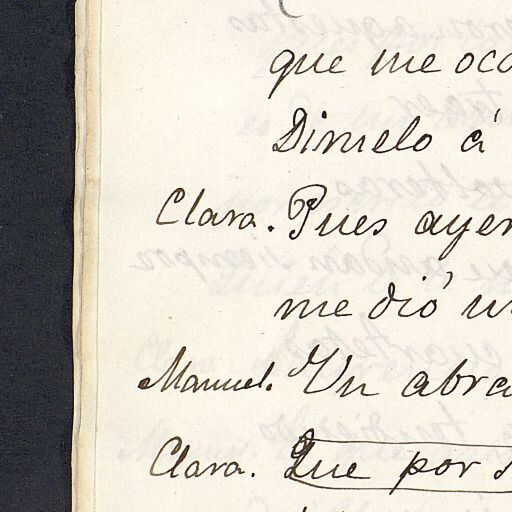 que me oco
Dimelo á
Clara. Pues ayer
me dió u
Manuel. Un abra
Clara. Que por s